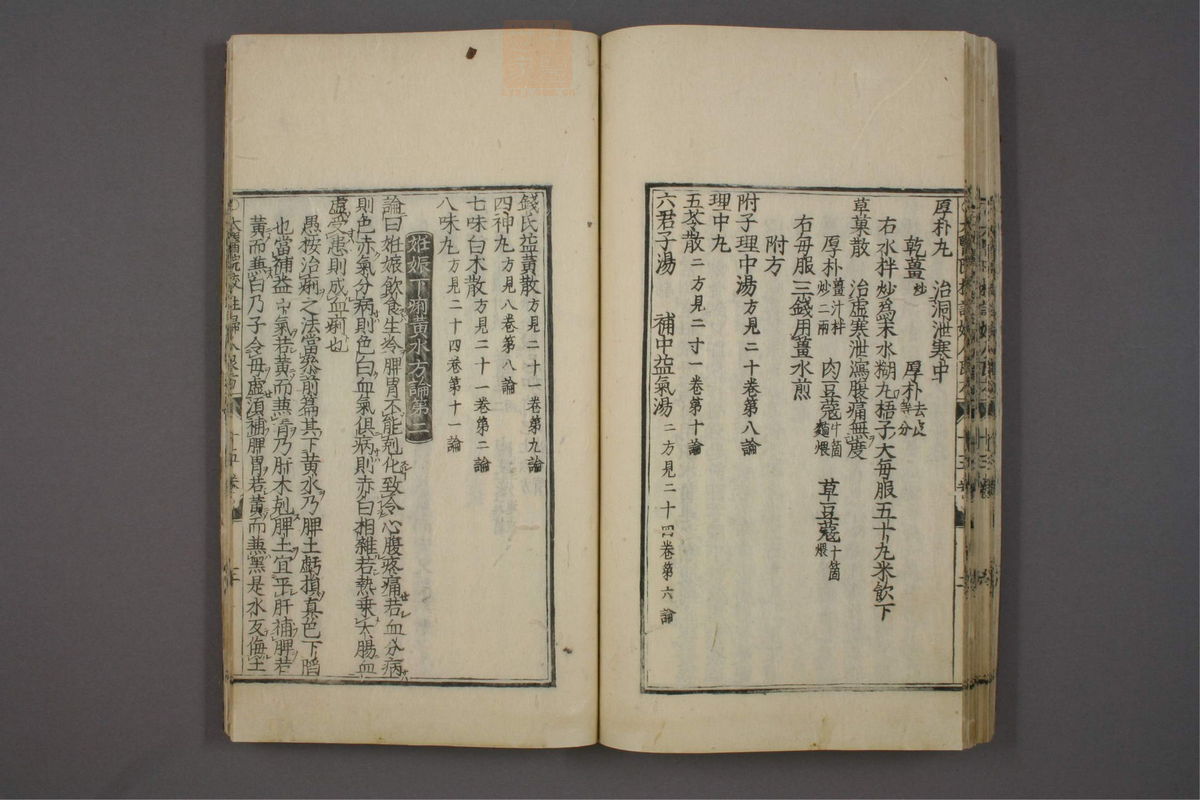 厚朴丸　治洞泄寒中
乾薑炒　厚朴去皮等分
右水拌炒爲末水糊丸梧子大每服五十丸米飲下
草菓散　治虛寒泄瀉腹痛無度
厚朴薑汁拌炒二兩　肉豆蔻十箇麵煨　草豆蔻十箇煨
右每服三錢用薑水煎
附方
附子理中湯方見二十卷第八論
理中丸
五苓散二方見二十一卷第十論
六君子湯　補中益氣湯二方見二十四卷第六論
錢氏益黃散方見二十一卷第九論
四神丸方見八卷第八論
七味白朮散方見二十一卷第二論
八味丸方見二十四卷第十一論
妊娠下痢黃水方論第二
論曰妊娠飲食生冷脾胃不能剋化致冷心腹疼痛若血分病
則色赤氣分病則色白血氣俱病則赤白相雜若熱乘大腸血
虛受患則成血痢也
愚按治痢之法當參前篇其下黃水乃脾土虧損真色下陷
也當補益中氣若黃而兼青乃肝木剋脾土宜平肝補脾若
黃而兼白乃子令母虛須補脾胃若黃而兼黑是水反侮土